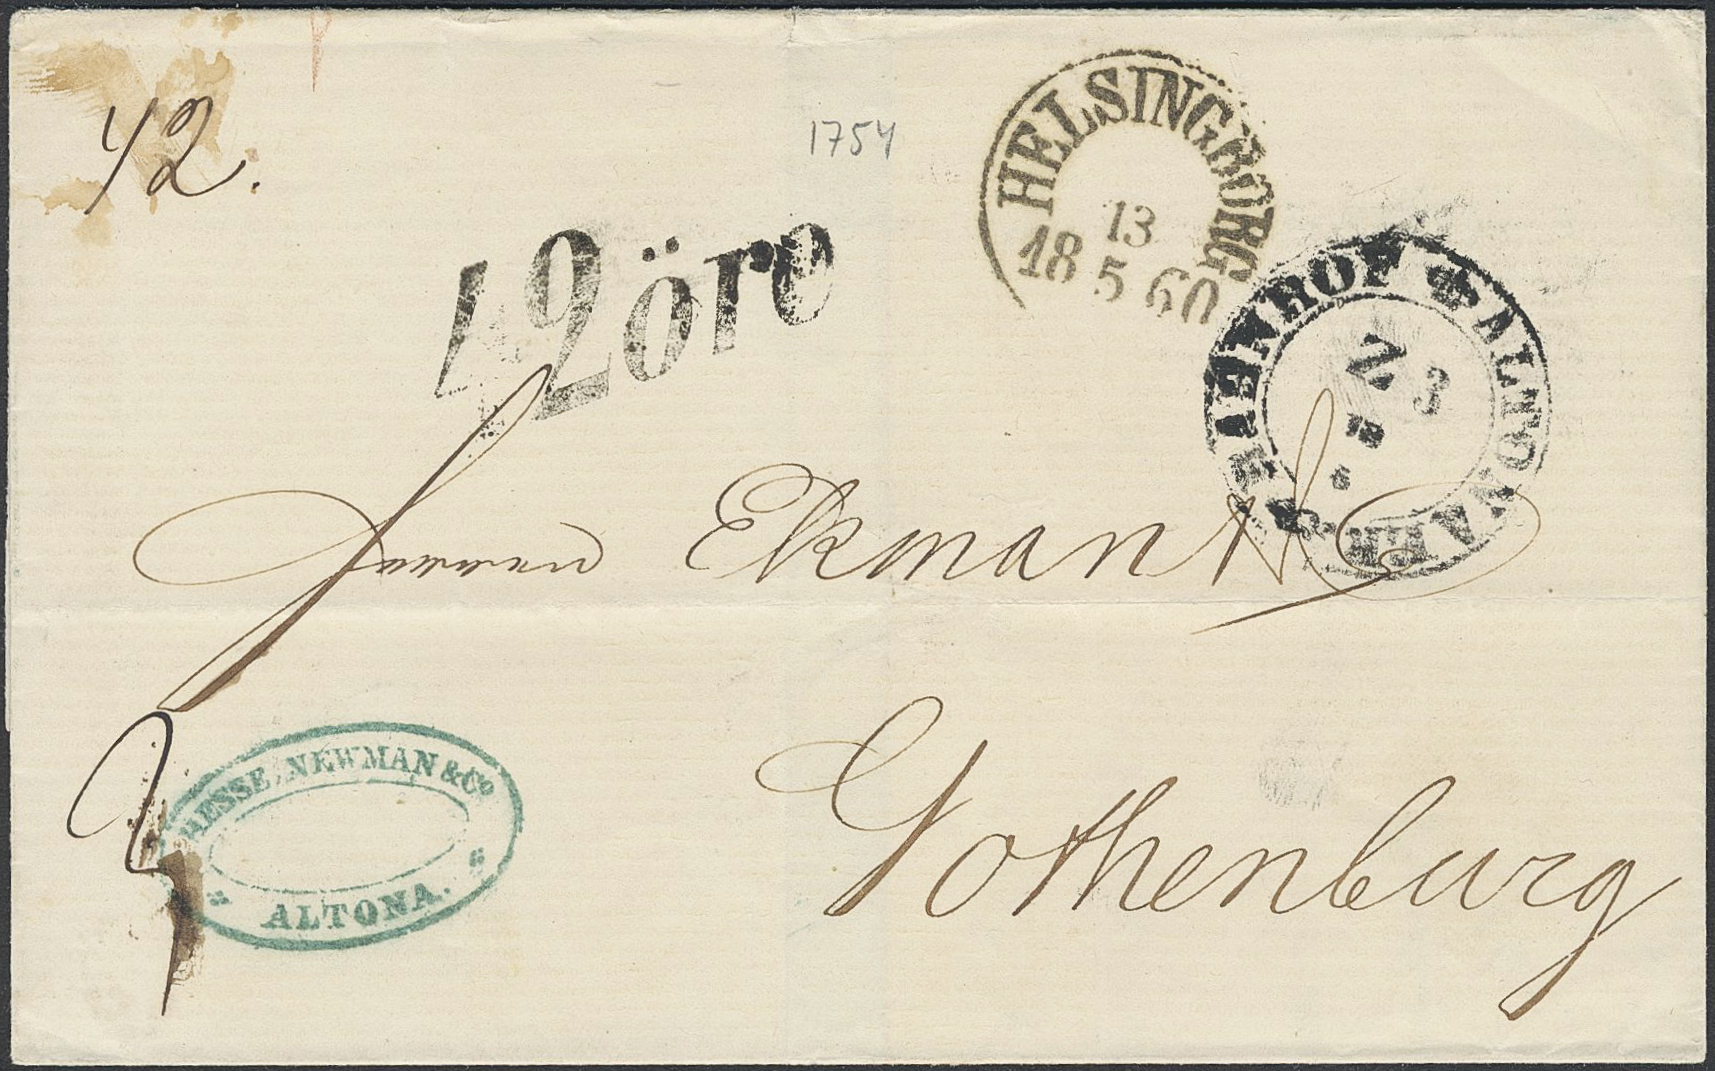 42.
1754
HELSINGBORG
13
18 5 60
12 öre
ALTONAER BAHNHOF
N 3
Herren Ekman & Co
Gothenburg
HESSE, NEWMAN & Co
ALTONA.